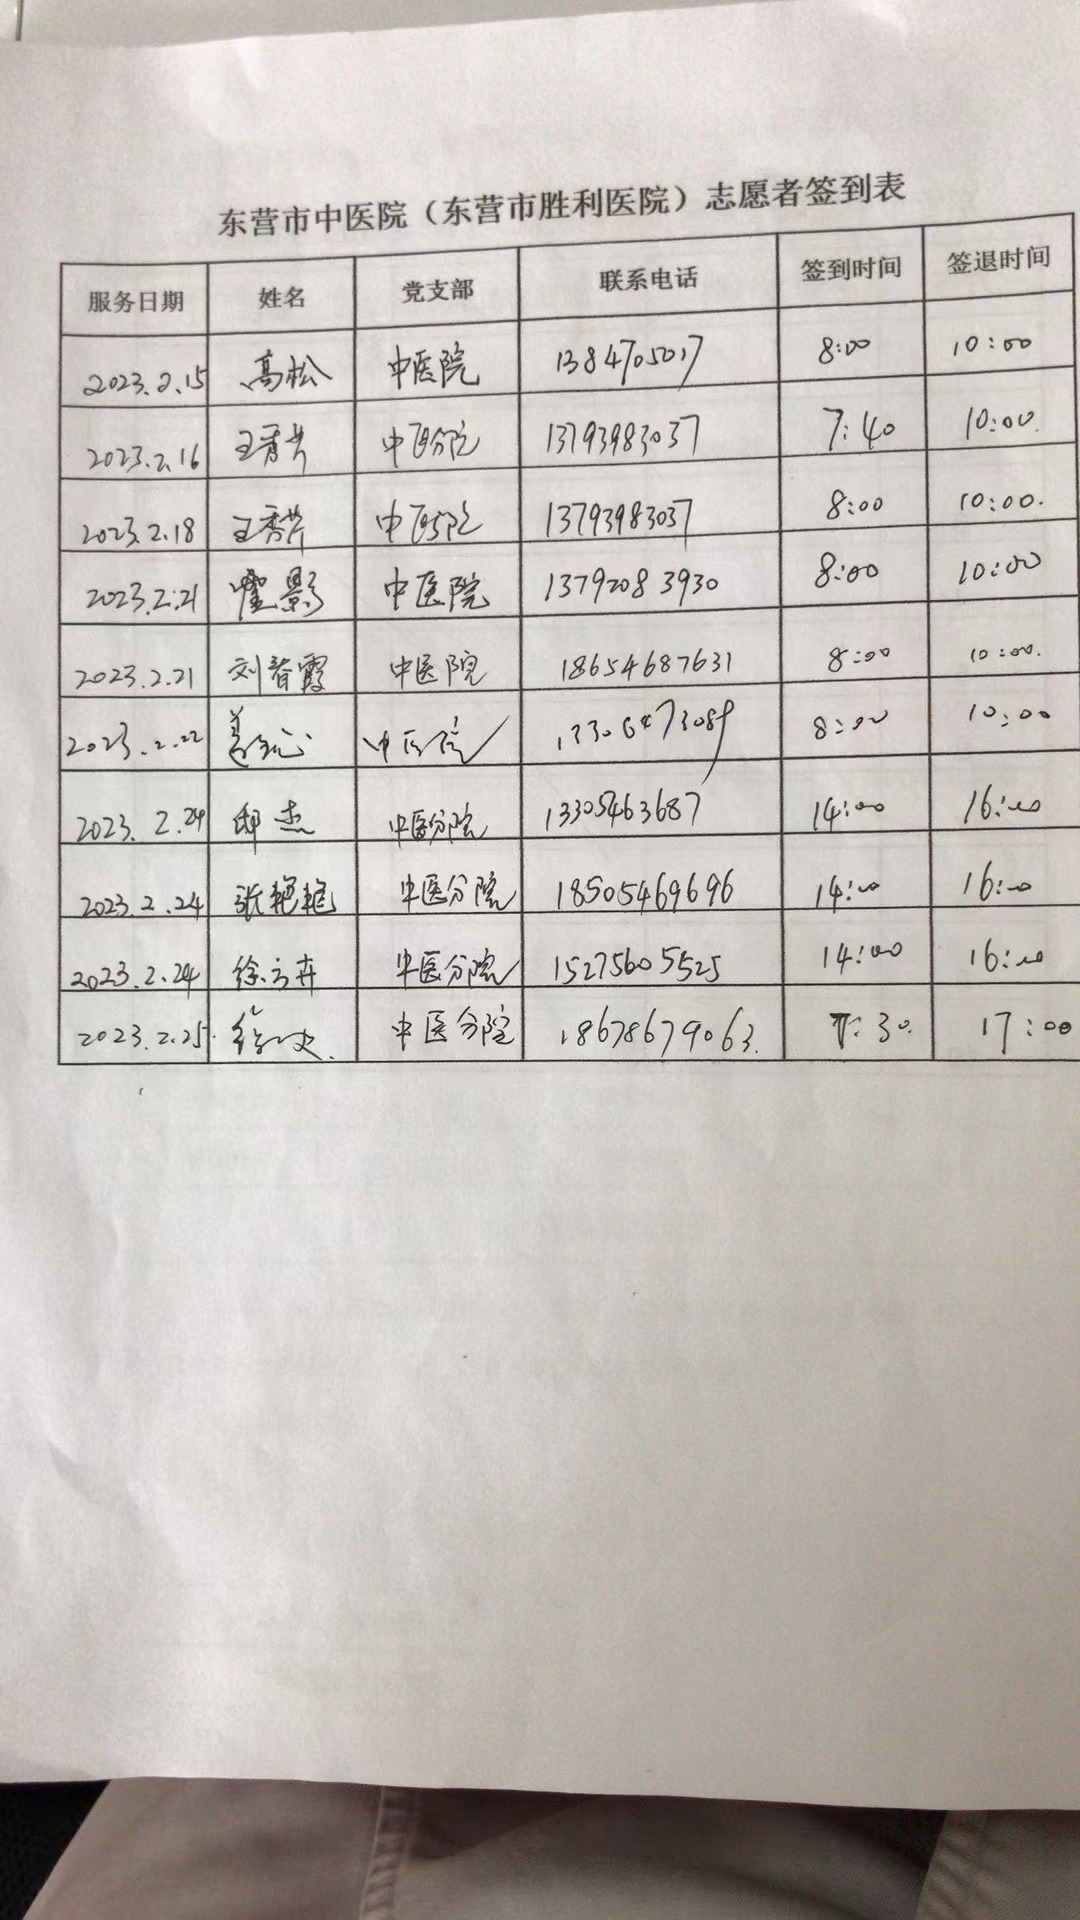 东营市中医院（东营市胜利医院）志愿者签到表
服务日期 姓名 党支部 联系电话 签到时间 签退时间
2023.2.15 高松 中医院 1384705017 8:00 10:00
2023.2.16 王秀芹 中医分院 13793983037 7:40 10:00.
2023.2.18 王秀芹 中医院 13793983037 8:00 10:00.
2023.2.21 霍影 中医院 13792083930 8:00 10:00
2023.2.21 刘春霞 中医院 18654687631 8:00 10:00.
2023.2.22 中医院 13306473089 8:00 10:00
2023.2.24 邱杰 中医分院 13305463687 14:00 16:00
2023.2.24 张艳艳 中医分院 18505469696 14:00 16:00
2023.2.24 徐方卉 中医分院 15275605525 14:00 16:00
2023.2.25. 中医分院 18678679063. 7:30. 17:00